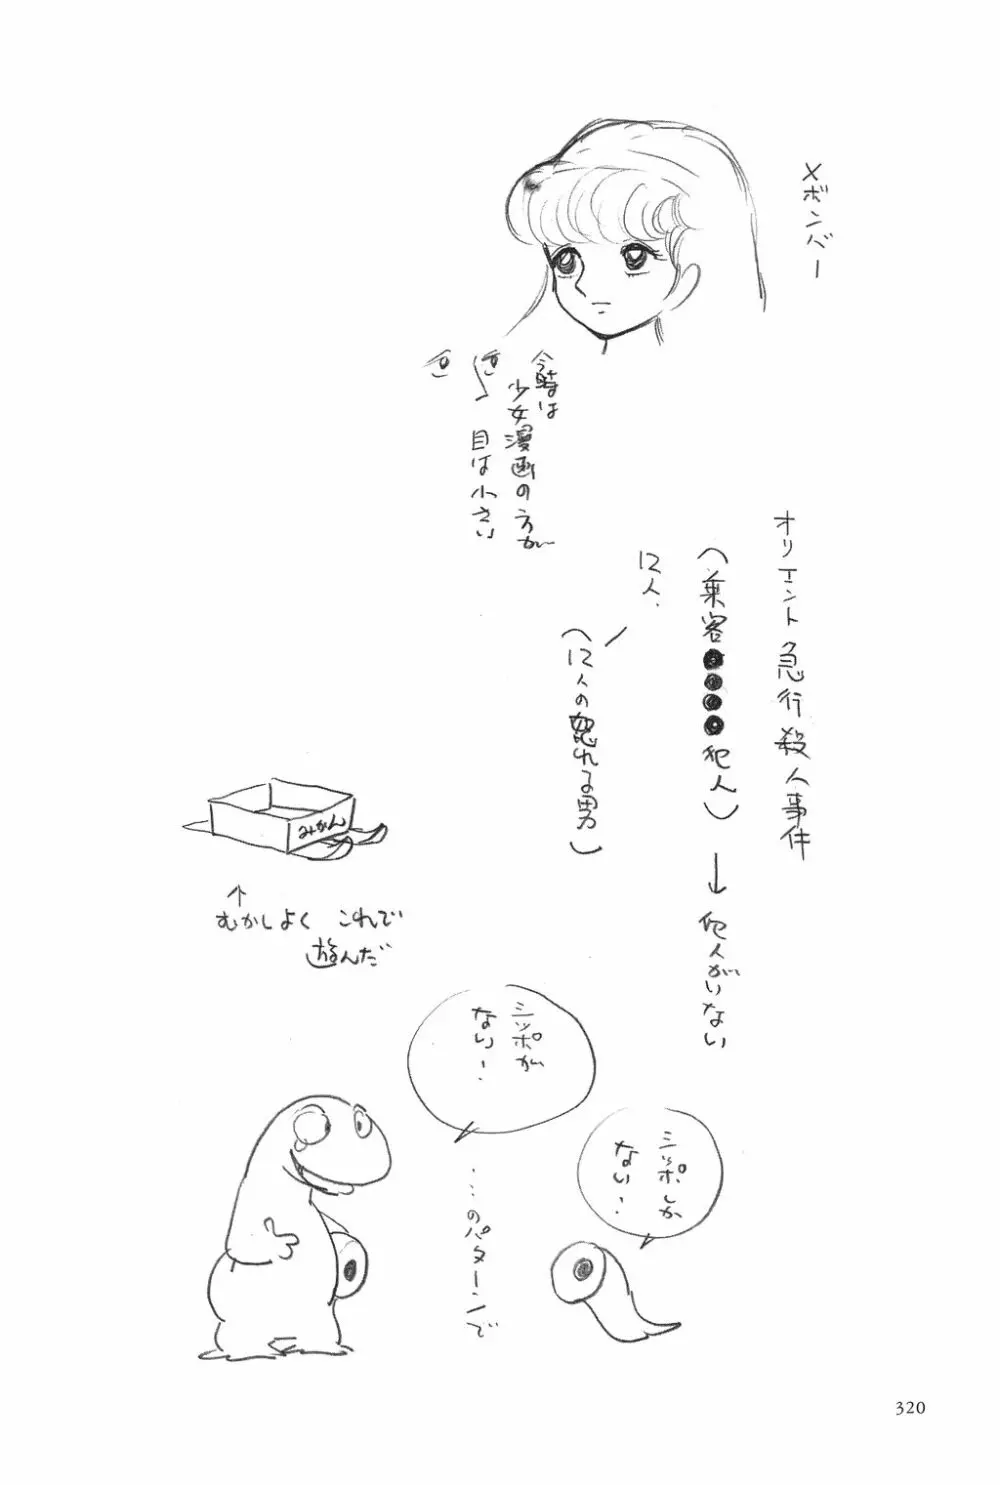 Xボンバー
今時は
少女漫画の方が
目は小さい
オリエント急行殺人事件
(乗客●●●●犯人)→犯人がいない
12人、
(12人の怒れる男)
みかん
↑
むかしよく これで
遊んだ
シッポが
ない…
……のパターンで
シッポしか
ない…
320